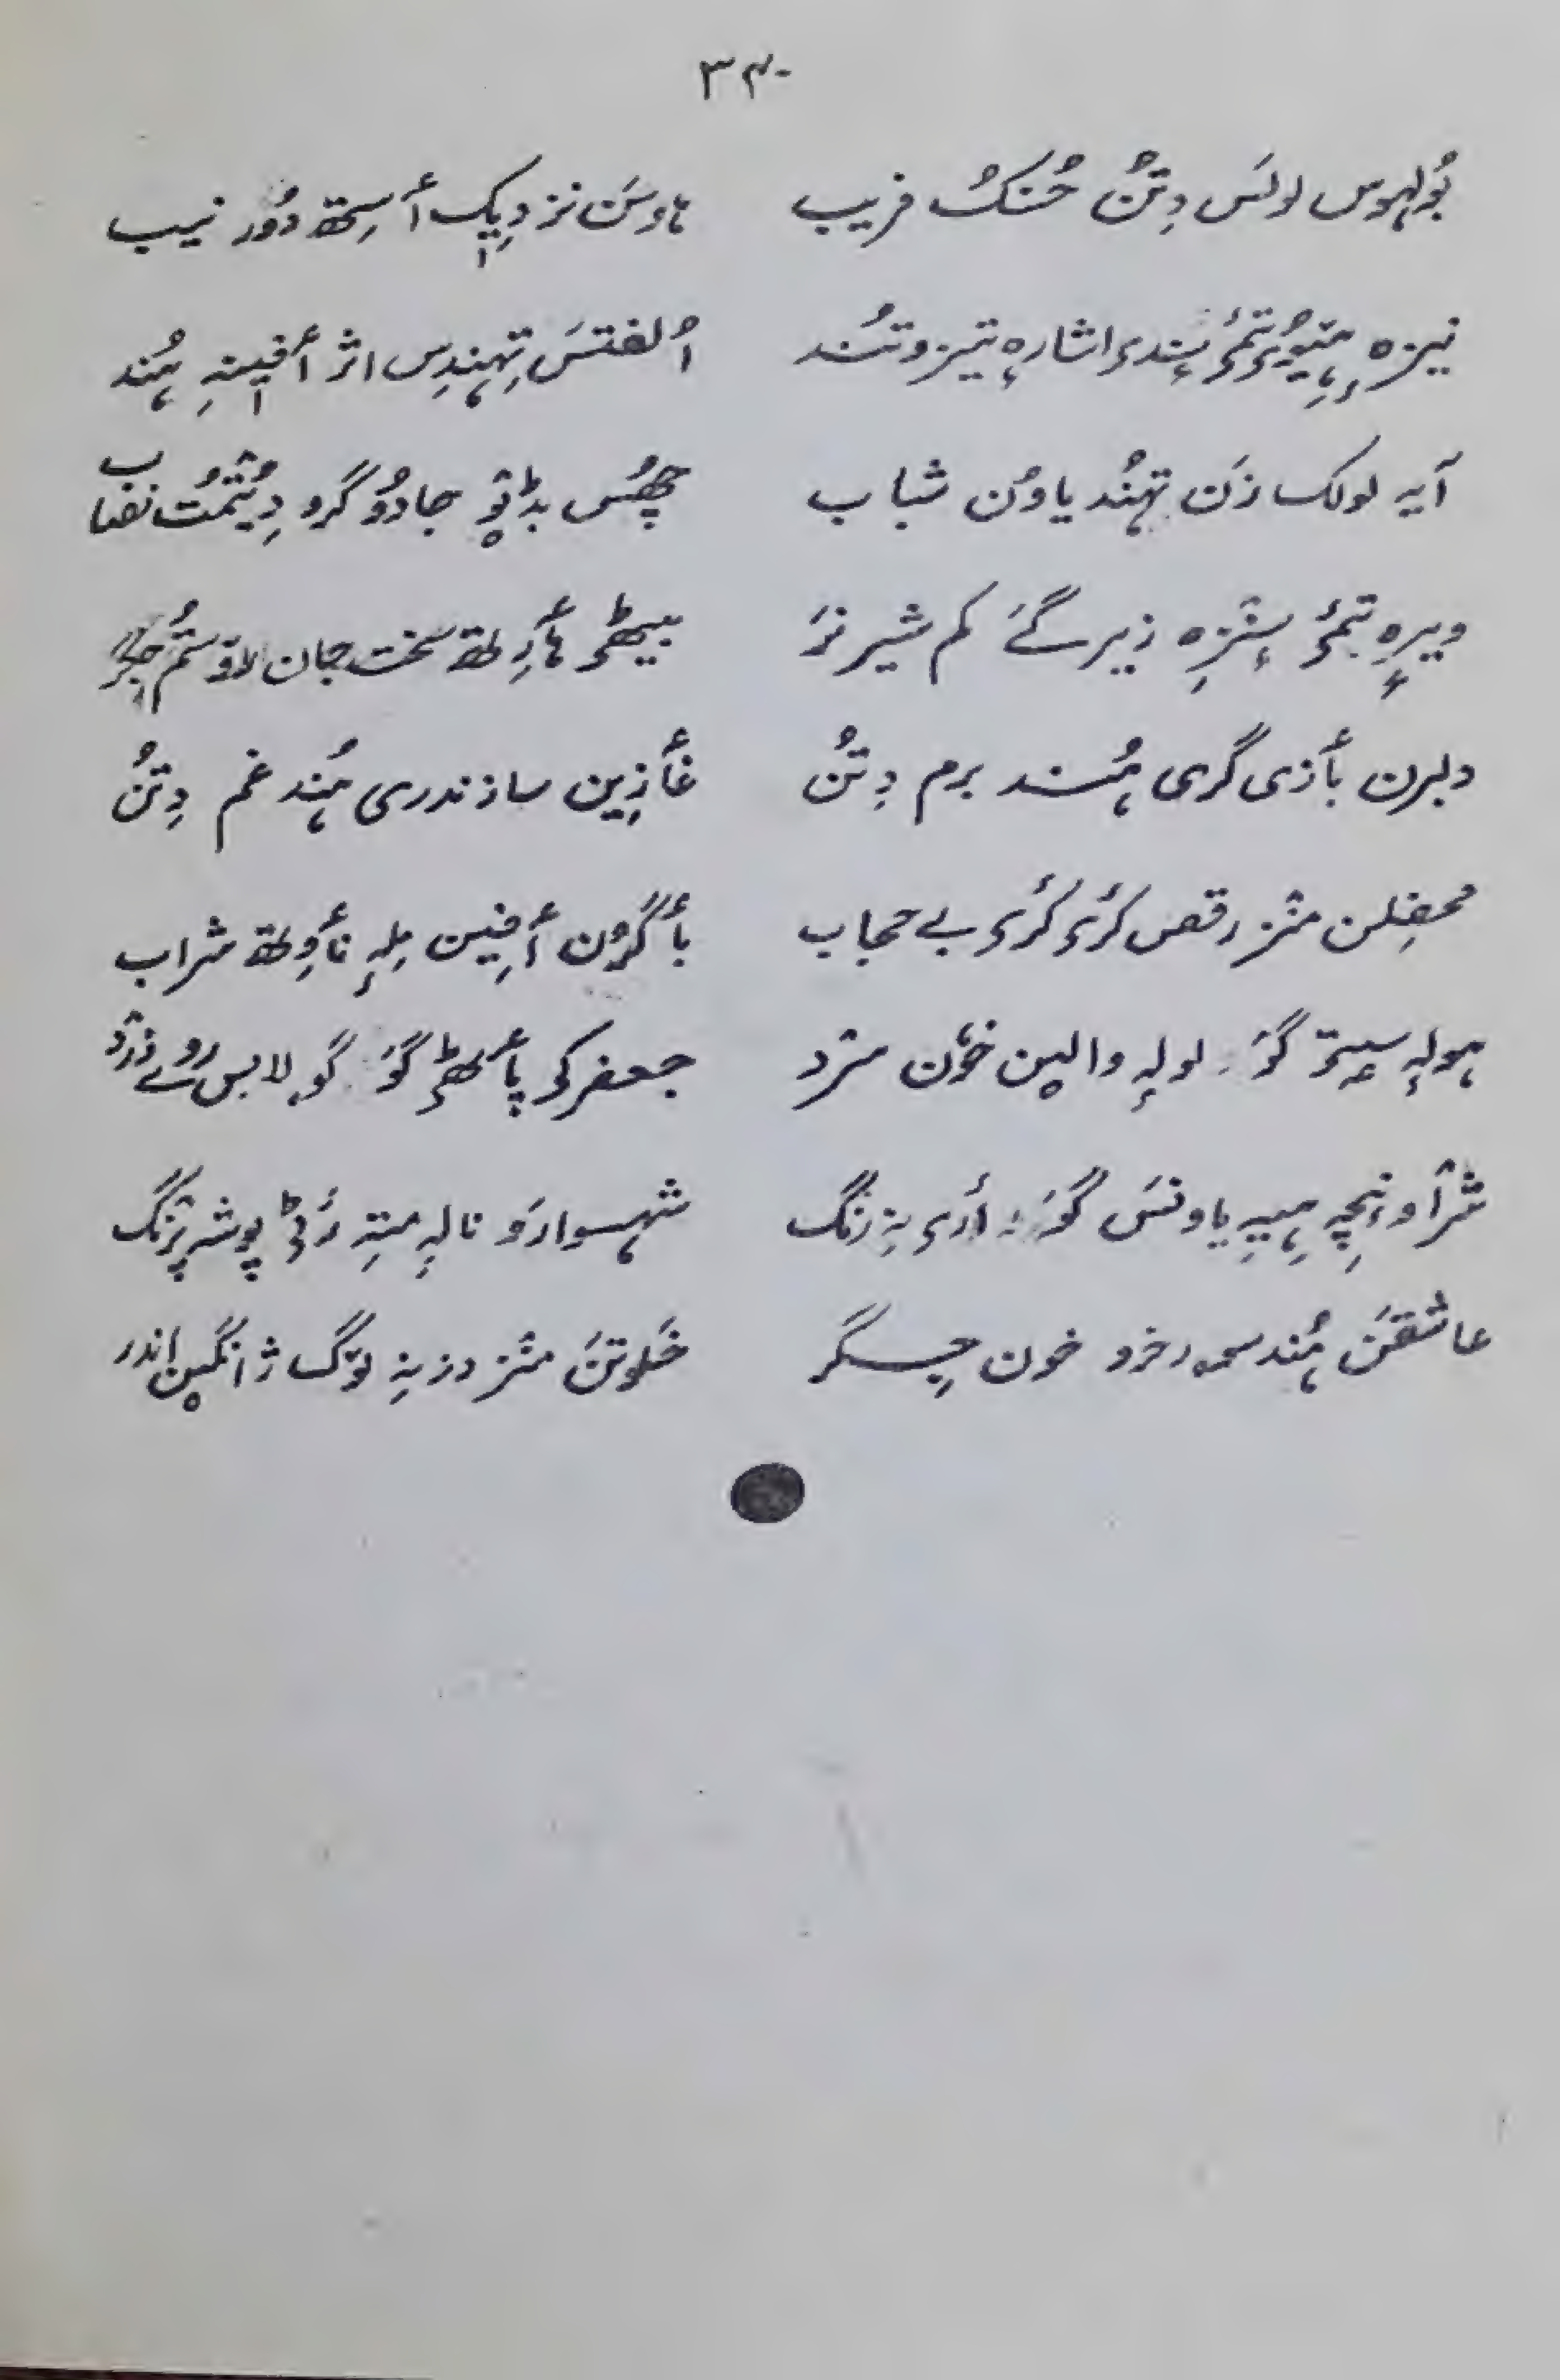 ۳۴۰
بُولہوس لولَس دِتُن حُسنُک فریب ہاوسَن نزدیٖک أسِتھ دوٗر نیب
نیزہٕ ہیٚتۍ تٔمۍ سٕندۍ اشارہٕ تیز و تُند اُلفتَس تِہندِس اثر أفیٖنہِ ہُند
آیہِ لولک زَن تہُند یاوُن شباب چھُس بڈٕ تو جادوٗگرو دِیُتمُت نقاب
ویرٕ تٔمۍ سٕنزِ زیر گے کم شیر نر بیٖٹھۍ ہأرِتھ سخت جان
دلبرن بأزی گری ہُند برم دِتُن غأزیَن سازندری ہُند غم دِتُن
محفلِن منٛز رقص کرۍ کرۍ بے حجاب بأگرُن أفیٖن مِلہٕ نأوِتھ شراب
ہولہٕ سۭتۍ گوٚو لولہٕ والین خوٗن سرد جعفرکۍ پأٹھۍ گوٚو گولابس روے زرد
شرٛاونچہِ ہیٚیہِ یاونَس گوٚو أرۍ نہِ رنگ شہسوارَو نالہٕ متہِ رٔٹ پوشہِ پرٛنگ
عاشقَن ہُند سرخرو خون جِگر خلوتَن منٛز دزنہِ لوٚگ ژانگین اندر